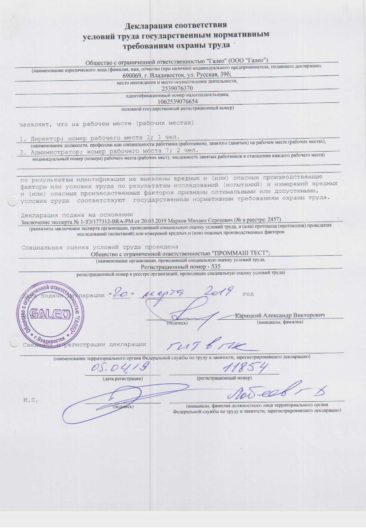 Декларация соответствия
условий труда государственным нормативным
требованиям охраны труда
Общество с ограниченной ответственностью "Галео" (ООО "Галео")
(наименование юридического лица (фамилия, имя, отчество (при наличии) индивидуального предпринимателя, подавшего декларацию,
690069, г. Владивосток, ул. Русская, 39б;
место нахождения и место осуществления деятельности,
2539076370
идентификационный номер налогоплательщика,
1062539076654
основной государственный регистрационный номер)
заявляет, что на рабочем месте (рабочих местах)
1. Директор; номер рабочего места 1; 1 чел.
2. Администратор; номер рабочего места 7; 2 чел.
(наименование должности, профессии или специальности работника (работников), занятого (занятых) на рабочем месте (рабочих местах),
индивидуальный номер (номера) рабочего места (рабочих мест), численность занятых работников в отношении каждого рабочего места)
по результатам идентификации не выявлены вредные и (или) опасные производственные
факторы или условия труда по результатам исследований (испытаний) и измерений вредных
и (или) опасных производственных факторов признаны оптимальными или допустимыми,
условия труда соответствуют государственным нормативным требованиям охраны труда.
Декларация подана на основании
Заключение эксперта № 1-ЗЭ/177312-ВRА-РМ от 20.03.2019 Марков Михаил Сергеевич (№ в реестре 2457)
(реквизиты заключения эксперта организации, проводившей специальную оценку условий труда, и (или) протокола (протоколов) проведения
исследований (испытаний) или измерений вредных и (или) опасных производственных факторов
Специальная оценка условий труда проведена
Общество с ограниченной ответственностью "ПРОММАШ ТЕСТ";
(наименование организации, проводившей специальную оценку условий труда,
Регистрационный номер - 535
регистрационный номер в реестре организаций, проводящих специальную оценку условий труда)
подачи декларации "20" марта 2019 год
GALEO
г. Владивосток
Карицкий Александр Викторович
(подпись) (инициалы, фамилия)
о регистрации декларации ГИТ в ПК
(наименование территориального органа Федеральной службы по труду и занятости, зарегистрировавшего декларацию)
05.04.19 11854
(дата регистрации) (регистрационный номер)
М.П.
(подпись) (инициалы, фамилия должностного лица территориального органа
Федеральной службы по труду и занятости, зарегистрировавшего декларацию)